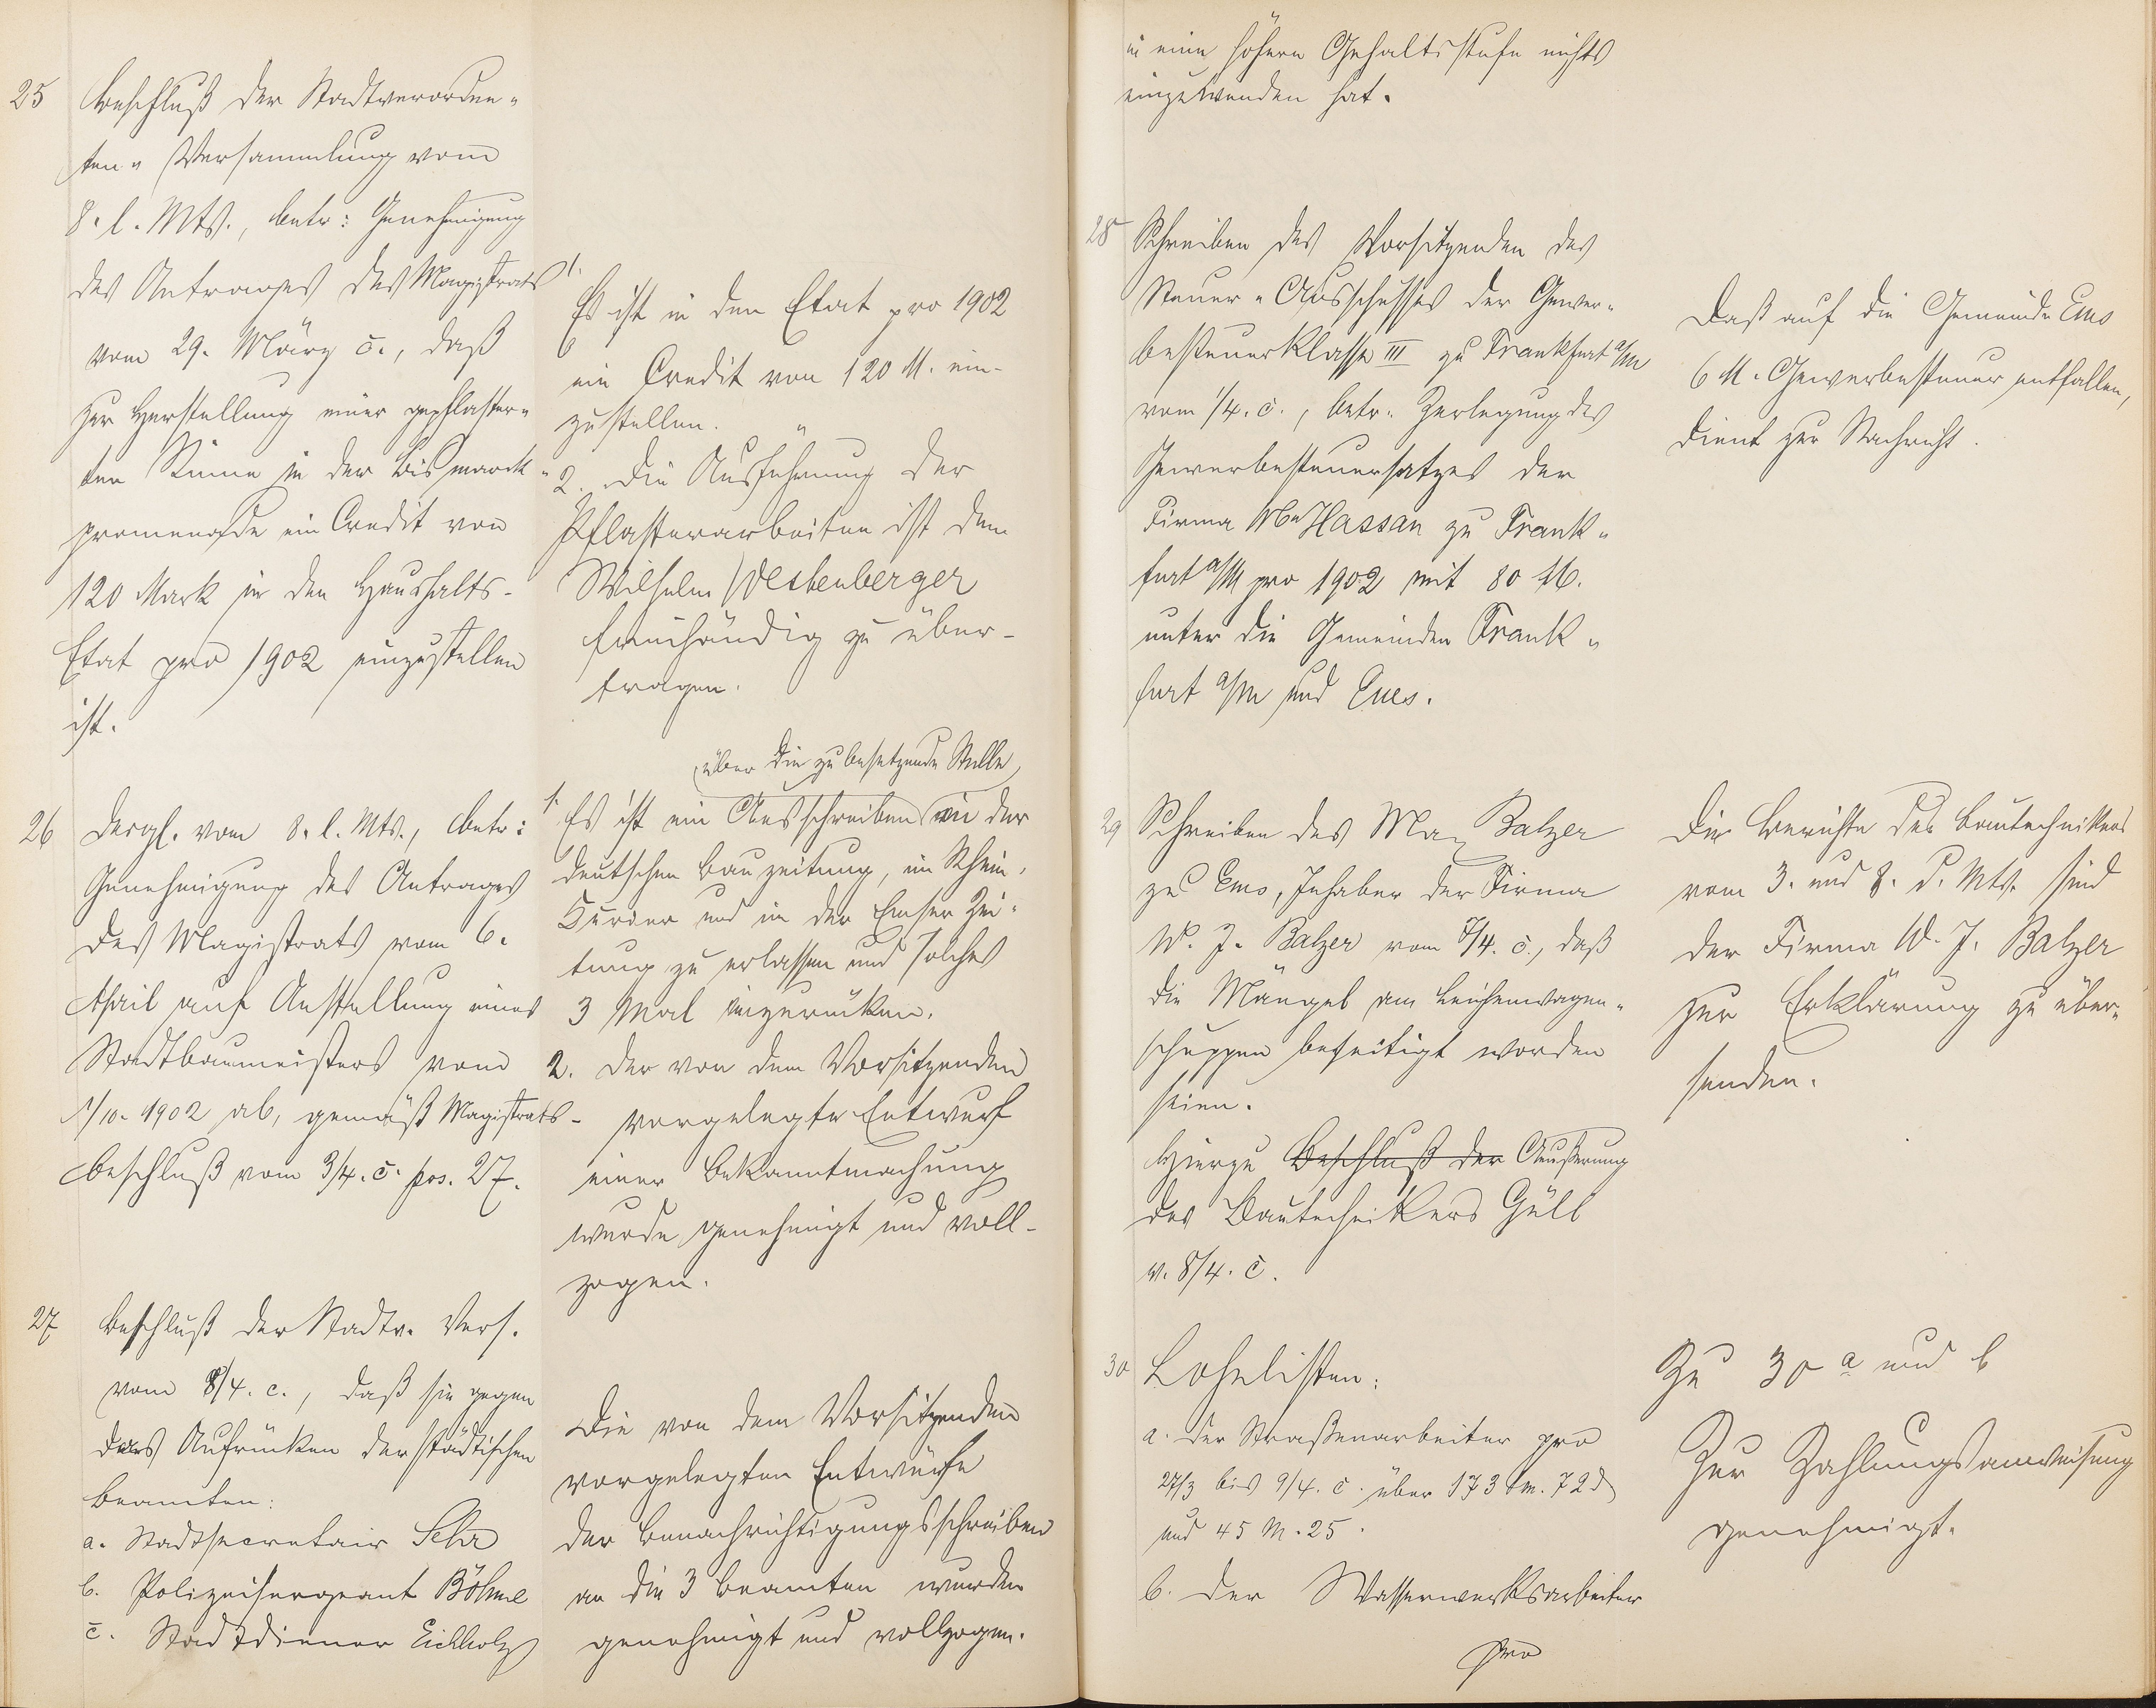 25 Beschluß der Stadtverordne-
ten-Versammlung vom
8. l. Mts., betr: Genehmigung
des Antrages des Magistrats
vom 29. März c., daß
zur Herstellung einer gepflaster-
ten Rinne in der Bismarck-
promenade ein Credit von
120 Mark in den Haushalts-
Etat pro 1902 einzustellen
ist.
1.
Es ist in den Etat pro 1902
ein Credit von 120 M. ein-
zustellen.
2. Die Ausführung der
Pflasterarbeiten ist dem
Wilhelm Westenberger
freihändig zu über-
tragen.
26 Desgl. vom 8. l. Mts., betr:
Genehmigung des Antrages
des Magistrats vom 6.
April auf Anstellung eines
Stadtbaumeisters vom
1/10. 1902 ab, gemäß Magistrats-
beschluß vom 3/4. c. pos. 27.
über die zu besetzende Stelle
1. Es ist ein Ausschreiben in der
deutschen Bauzeitung, im Rhein.
Kurier und in der Emser Zei-
tung zu erlassen und solches
3 Mal einzurücken.
2. Der von dem Vorsitzenden
vorgelegte Entwurf
einer Bekanntmachung
wurde genehmigt und voll-
zogen.
27 Beschluß der Stadtv. Vers.
vom 8/4. c., daß sie gegen
das Aufrücken der städtischen
Beamten:
a. Stadtsecretair Sehr
b. Polizeisergeant Böhme
c. Stadtdiener Eichholz
Die von dem Vorsitzenden
vorgelegten Entwürfe
der Benachrichtigungsschreiben
an die 3 Beamten wurden
genehmigt und vollzogen.
in eine höhere Gehaltsstufe nichts
einzuwenden hat.
28 Schreiben des Vorsitzenden des
Steuer-Ausschusses der Gewer-
besteuerklasse III zu Frankfurt a/M
vom 1/4. c., betr. Zerlegung des
Gewerbesteuersatzes der
Firma Hassan zu Frank-
furt a/M pro 1902 mit 80 M.
unter die Gemeinden Frank-
furt a/M und Ems.
Daß auf die Gemeinde Ems
6 M. Gewerbesteuer entfallen,
dient zur Nachricht.
29 Schreiben des Max Balzer
zu Ems, Inhaber der Firma
W. J. Balzer vom 7/4. c., daß
die Mängel am Leichenwagen-
schuppen beseitigt worden
seien.
Hierzu Beschluß der Äußerung
des Bautechnikers Güll
v. 8/4. c.
Die Berichte des Bautechnikers
vom 3. und 8. d. Mts. sind
der Firma W. J. Balzer
zur Erklärung zu über-
senden.
30 Lohnlisten:
a. der Straßenarbeiter pro
27/3 bis 9/4. c. über 173 M. 72 d
und 45 M. 25.
b. der Wasserwerksarbeiter
pro
Zu 30 a und b
Zur Zahlungsanweisung
genehmigt.